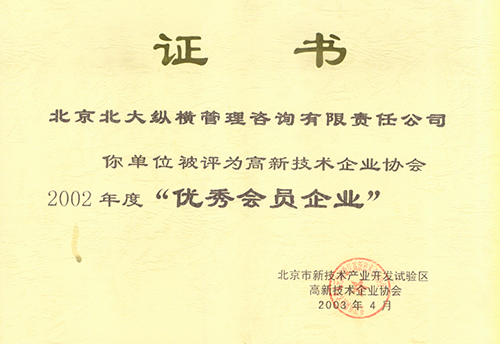 证 书
北京北大纵横管理咨询有限责任公司
你单位被评为高新技术企业协会
2002 年度“优秀会员企业”
北京市新技术产业开发试验区
高新技术企业协会
2003 年 4 月